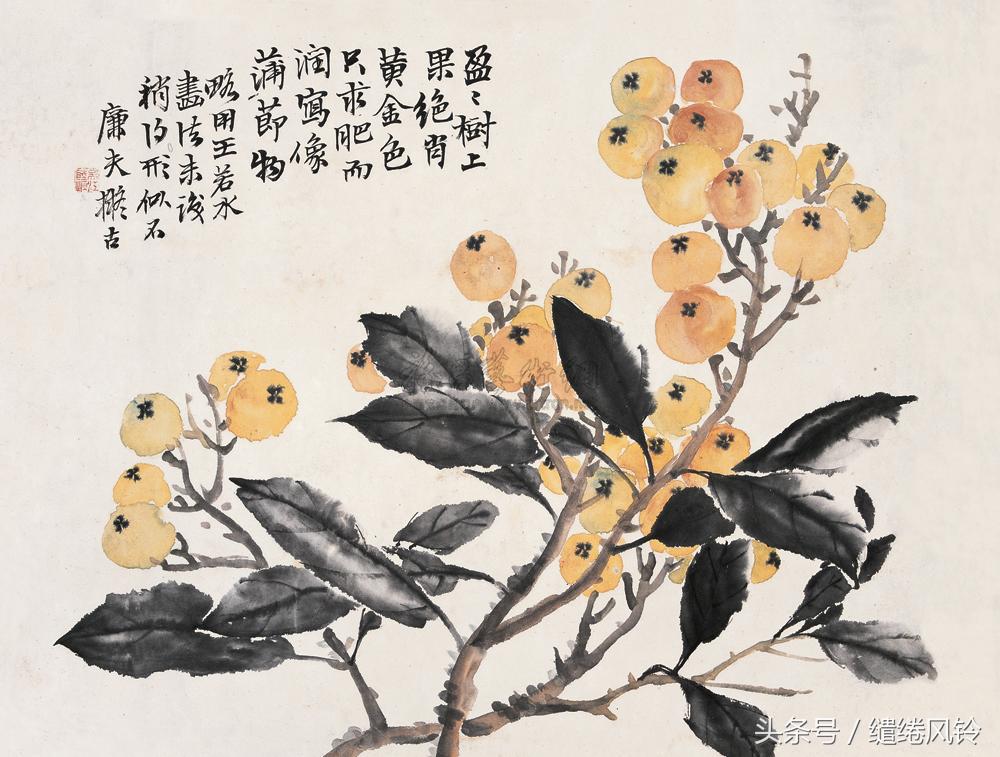 盈〻樹上
果絕肖
黄金色
只求肥而
潤寫像
蒲節物
略用王若水
畫法未識
稍得形似不
廉夫擬古
头条号 / 缱绻风铃